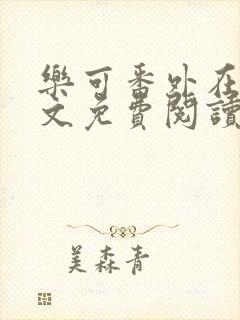 樂可番外在
文免費閱讀
美森青